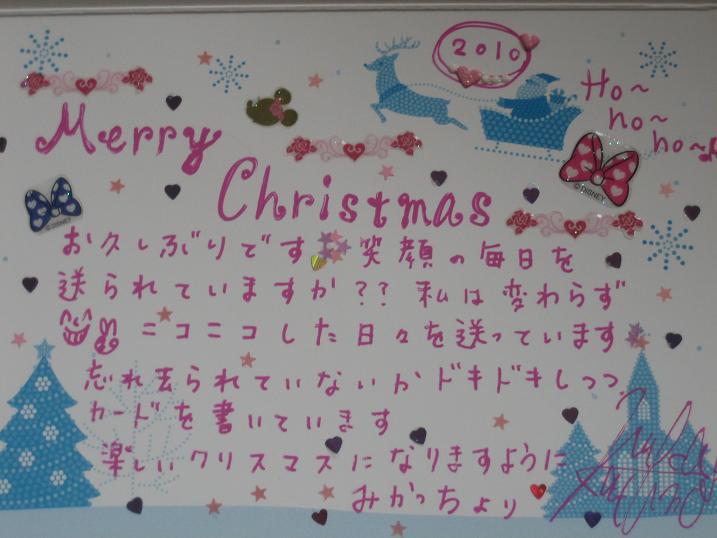 2010
Ho~
ho~
ho~♪
Merry
Christmas
© DISNEY
© DISNEY
お久しぶりです 笑顔の毎日を
送られていますか?? 私は変わらず
ニコニコした日々を送っています
忘れ去られていないかドキドキしつつ
カードを書いています
楽しいクリスマスになりますように
みかっちょり